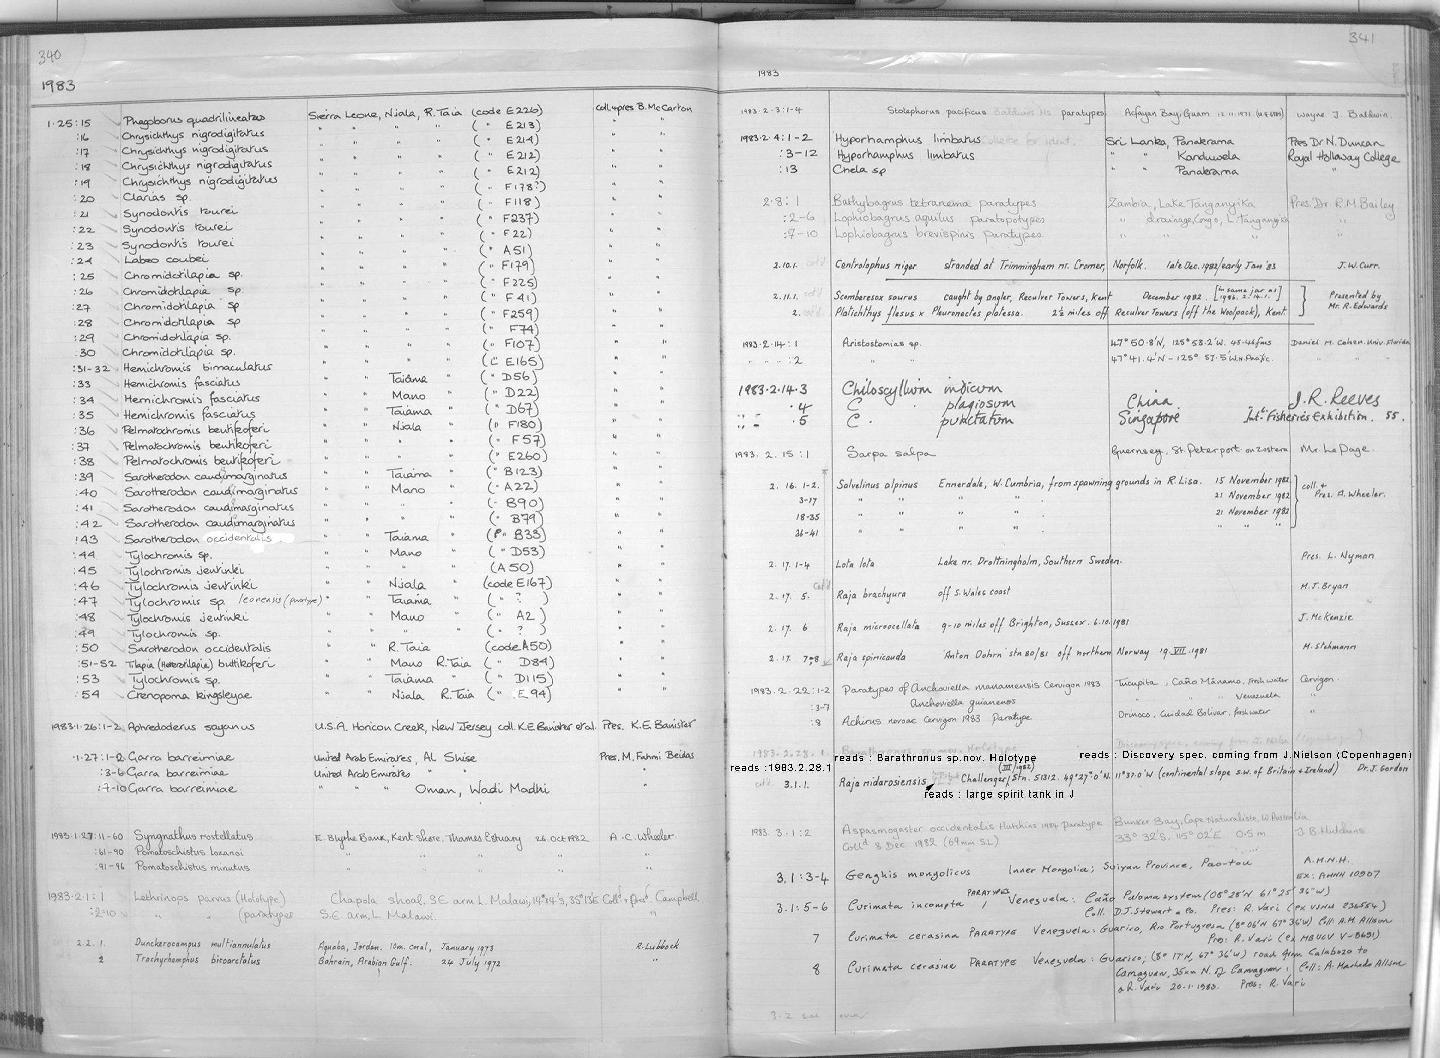 340
1983
1.25:15 Phagoborus quadrilineatus Sierra Leone, Njala, R. Taia (code E226) coll + pres B. McCarton
:16 Chrysichthys nigrodigitatus " " " " ( " E213) " "
:17 Chrysichthys nigrodigitatus " " " " ( " E214) " "
:18 Chrysichthys nigrodigitatus " " " " ( " E212) " "
:19 Chrysichthys nigrodigitatus " " " " ( " E212) " "
:20 Clarias sp. " " " " ( " F178?) " "
:21 Synodontis tourei " " " " ( " F118) " "
:22 Synodontis tourei " " " " ( " F237) " "
:23 Synodontis tourei " " " " ( " F22) " "
:24 Labeo coubei " " " " ( " A51) " "
:25 Chromidotilapia sp. " " " " ( " F179) " "
:26 Chromidotilapia sp. " " " " ( " F225) " "
:27 Chromidotilapia sp " " " " ( " F41) " "
:28 Chromidotilapia sp " " " " ( " F259) " "
:29 Chromidotilapia sp. " " " " ( " F74) " "
:30 Chromidotilapia sp. " " " " ( " F107) " "
:31-32 Hemichromis bimaculatus " " " " ( " E165) " "
:33 Hemichromis fasciatus " " Taiama " ( " D56) " "
:34 Hemichromis fasciatus " " Mano " ( " D22) " "
:35 Hemichromis fasciatus " " Taiama " ( " D67) " "
:36 Pelmatochromis beutikoferi " " Njala " ( " F180) " "
:37 Pelmatochromis beutikoferi " " " " ( " F57) " "
:38 Pelmatochromis beutikoferi " " " " ( " E260) " "
:39 Sarotherodon caudimarginatus " " Taiama " ( " B123) " "
:40 Sarotherodon caudimarginatus " " Mano " ( " A22) " "
:41 Sarotherodon caudimarginatus " " " " ( " B90) " "
:42 Sarotherodon caudimarginatus " " " " ( " B79) " "
:43 Sarotherodon occidentalis " " Taiama " ( " B33) " "
:44 Tylochromis sp. " " Mano " ( " D53) " "
:45 Tylochromis jentinki " " " " (A50) " "
:46 Tylochromis jentinki " " Njala " (code E167) " "
:47 Tylochromis sp leonensis (paratype) " " Taiama " ( " ? ) " "
:48 Tylochromis jentinki " " Mano " ( " A2) " "
:49 Tylochromis sp. " " " " ( " ? ) " "
:50 Sarotherodon occidentalis " " R. Taia (code A50) " "
:51-52 Tilapia (Heterotilapia) buttikoferi " " Mano R. Taia ( " D84) " "
:53 Tylochromis sp. " " Taiama " ( " D115) " "
:54 Ctenopoma kingsleyae " " Njala R. Taia ( " E94) " "
1983.1.26:1-2 Aphredoderus sayanus U.S.A. Horicon Creek, New Jersey coll. K.E. Banister et al. Pres. K.E. Banister
1.27:1-2 Garra barreimiae United Arab Emirates, Al Shise Pres. M. Fahmi Beidas
:3-6 Garra barreimiae United Arab Emirates " " "
:7-10 Garra barreimiae " " " Oman, Wadi Madhi "
1983.1.27:11-60 Syngnathus rostellatus E. Blythe Bank, Kent shore. Thames Estuary 26 Oct 1982 A.C. Wheeler
:61-90 Pomatoschistus lozanoi " " " " "
:91-96 Pomatoschistus minutus " " " " "
1983.2.1:1 Lethrinops parvus (Holotype) Chapola shoal, S.E. arm L. Malawi, 14°14'S, 35°13'E Coll. + Pres. Campbell
:2-10 " " (paratypes S.E. arm, L. Malawi. "
2.2.1. Dunckerocampus multiannulatus Aqaba, Jordan. 10m. coral, January 1973 R. Lubbock
2 Trachyrhamphus bicoarctatus Bahrain, Arabian Gulf. 24 July 1972 "
341
1983
1983.2.3:1-4 Stolephorus pacificus Baldwin paratypes Agfayan Bay, Guam 12.11.1971 Wayne J. Baldwin.
1983.2.4:1-2 Hyporhamphus limbatus College for ident. Sri Lanka, Panakerama Pres Dr N. Duncan
:3-12 Hyporhamphus limbatus " " Kanduwela Royal Holloway College
:13 Chela sp " " Panakrama "
2.8:1 Bathybagrus tetranema paratypes Zambia, Lake Tanganyika Pres. Dr R.M. Bailey
:2-6 Lophiobagrus aquilus paratopotypes " drainage, Congo, L. Tanganyika "
:7-10 Lophiobagrus brevispinis paratypes. " " " "
2.10.1. Centrolophus niger stranded at Trimmingham nr. Cromer, Norfolk. late Dec. 1982/early Jan '83 J.W. Curr.
2.11.1. Scomberesox saurus caught by angler, Reculver Towers, Kent December 1982. [in same jar as 1986.2.14.1.] Presented by
2. Platichthys flesus x Pleuronectes platessa. 2½ miles off Reculver Towers (off the Woolpack), Kent. Mr. R. Edwards
1983.2.14:1 Aristostomias sp. 47° 50.8'N, 125° 53.2'W. 45-46 fms Daniel M. Cohen. Univ. Florida
" " " :2 " " 47° 41.4'N - 125° 57.5'W. N. Pacific. " "
1983.2.14.3 Chiloscyllium indicum J.R. Reeves
.4 C " plagiosum China
.5 C. " punctatum Singapore Int. Fisheries Exhibition. 55.
1983. 2.15:1 Sarpa salpa Guernsey, St Peterport on zostera Mr. Le Page.
2.16.1-2 Salvelinus alpinus Ennerdale, W. Cumbria, from spawning grounds in R. Lisa. 15 November 1982 coll. +
3-17 " " " " 21 November 1982 Pres. A. Wheeler.
18-35 " " " " 21 November 1982
36-41 " " " " " "
2.17.1-4 Lota lota Lake nr. Drottningholm, Southern Sweden. Pres. L. Nyman
2.17. 5. Raja brachyura off S. Wales coast M.J. Bryan
2.17. 6 Raja microocellata 9-10 miles off Brighton, Sussex. 6.10.1981 J. McKenzie
2.17. 7-8 Raja spinicauda 'Anton Dohrn' stn 80/81 off northern Norway 19.VII.1981 M. Stehmann
1983.2.22:1-2 Paratypes of Anchoviella manamensis Cervigon 1983 Tucupita, Caño Mánamo, freshwater Cervigon.
:3-7 Anchoviella guianensis " " Venezuela "
:8 Achirus novoae Cervigon 1983 Paratype Orinoco, Cuidad Bolivar, freshwater "
1983.2.28.1 Barathronus sp. nov. Holotype
reads :1983.2.28.1 reads : Barathronus sp.nov. Holotype reads : Discovery spec. coming from J.Nielson (Copenhagen)
3.1.1. Raja nidarosiensis 'Challenger' (III 1982) Stn. 51312. 49°27'0"N. 11°37.0'W (continental slope S.W. of Britain + Ireland) Dr. J. Gordon
reads : large spirit tank in J
1983. 3.1:2 Aspasmogaster occidentalis Hutchins 1984 paratype Bunker Bay, Cape Naturaliste, W. Australia
Coll'd 8 Dec 1982 (69mm S.L.) 33° 32'S, 115° 02'E 0.5 m J.B. Hutchins
3.1:3-4 Genghis mongolicus Inner Mongolia; Suiyan Province, Pao-tou A.M.N.H.
ex: AMNH 10907
3.1:5-6 Curimata incompta PARATYPES, Venezuela: Caño Paloma system (08°28'N 61°25'36"W)
Coll. D.J. Stewart & Co. Pres: R. Vari (ex USNM 236554)
7 Curimata cerasina PARATYPE Venezuela: Guarico, Rio Portugesa (8°06'N 67°36'W) Coll: A.M. Allison
Pres: R. Vari (ex MBUCV V-8691)
8 Curimata cerasina PARATYPE Venezuela: Guarico; (8° 17'N, 67° 36'W) road from Calabozo to
Camaguan, 35km N. of Camaguan; Coll: A. Machado Allison
& R. Vari 20.1.1983. Pres: R. Vari
3.2 see over